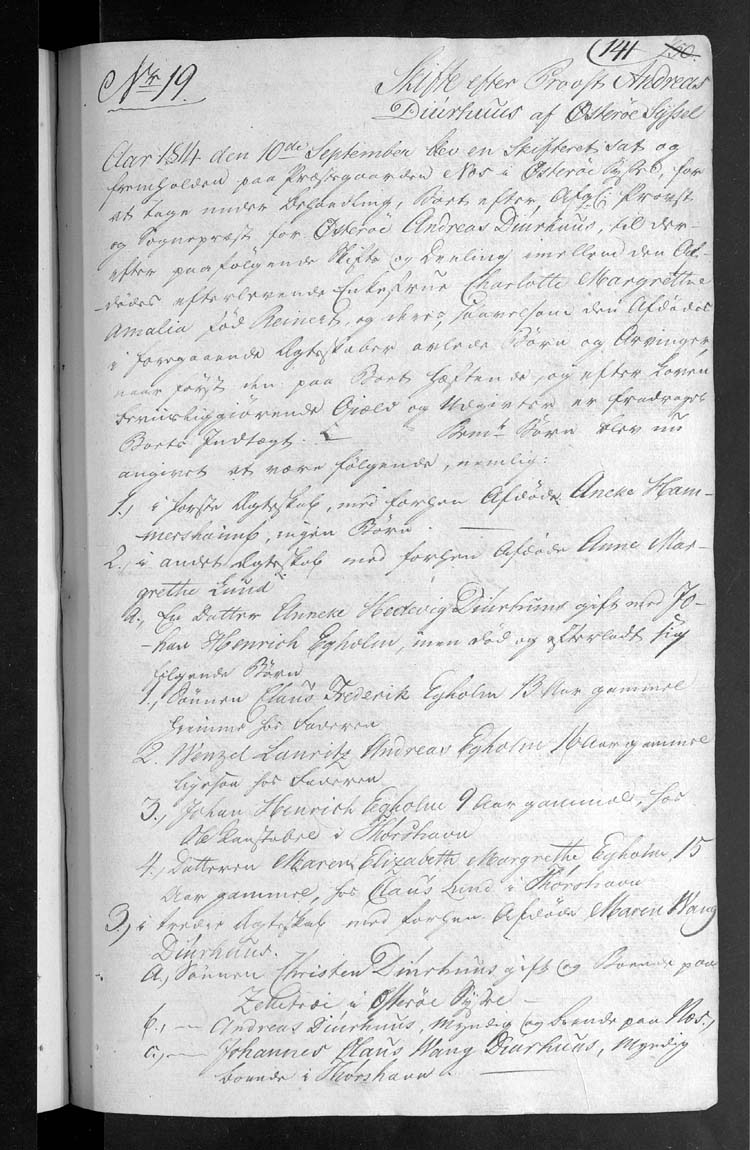 141 130.
No 19.
Skifte efter Provst Andreas
Diurhuus af Österöe Sÿssel
Aar 1814 den 10de September blev en Skifteret sat og
fremholden paa Præstegaarden Næs i Österöe Sÿssel, for
at tage under Behandling, Boet efter Afg: Provst
og Sognepræst for Österöe Andreas Diurhuus, til der-
efter paafölgende Skifte og Deeling imellem den Af-
dödes efterlevende Enkefrue Charlotte Margrethe
Amalia föd Reinert, og deres, saavelsom den Afdödes
i foregaaende Ægteskaber avlede Börn og Arvinger,
naar först den paa Boet hæftende, og efter Loven
beviisliggiörende Giæld og Udgivter er fradraget
Boets Indtægt. Bem.te Börn blev nu
angivet at være fölgende, nemlig:
1., i förste Ægteskab, med forhen Afdöde Aneke Ham-
mershaimb, ingen Börn.
2., i andet Ægteskab med forhen Afdöde Anne Mar-
grethe Lund
a., En Datter Anneke Hedevig Diurhuus gift med Jo-
han Henrich Egholm, men död og efterladt sig
fölgende Börn
1., Sönnen Claus Frederik Egholm 13 Aar gammel
hiemme hos Faderen
2. Wenzel Lauritz Andreas Egholm 16 Aar gammel
ligesaa hos Faderen
3., Johan Henrich Egholm 9 Aar gammel, hos
Ole Constabel i Thorshavn
4., Datteren Maren Elizabeth Margrethe Egholm, 15
Aar gammel, hos Claus Lund i Thorshavn
3., i tredie Ægteskab med forhen Afdöde Maren Wang
Diurhuus.
a., Sönnen Christen Diurhuus, gift og Boende paa
i Österöe Sÿssel
b., — Andreas Diurhuus, Myndig og boende paa Næs.,
c., — Johannes Claus Wang Diurhuus, Myndig
boende i Thorshavn